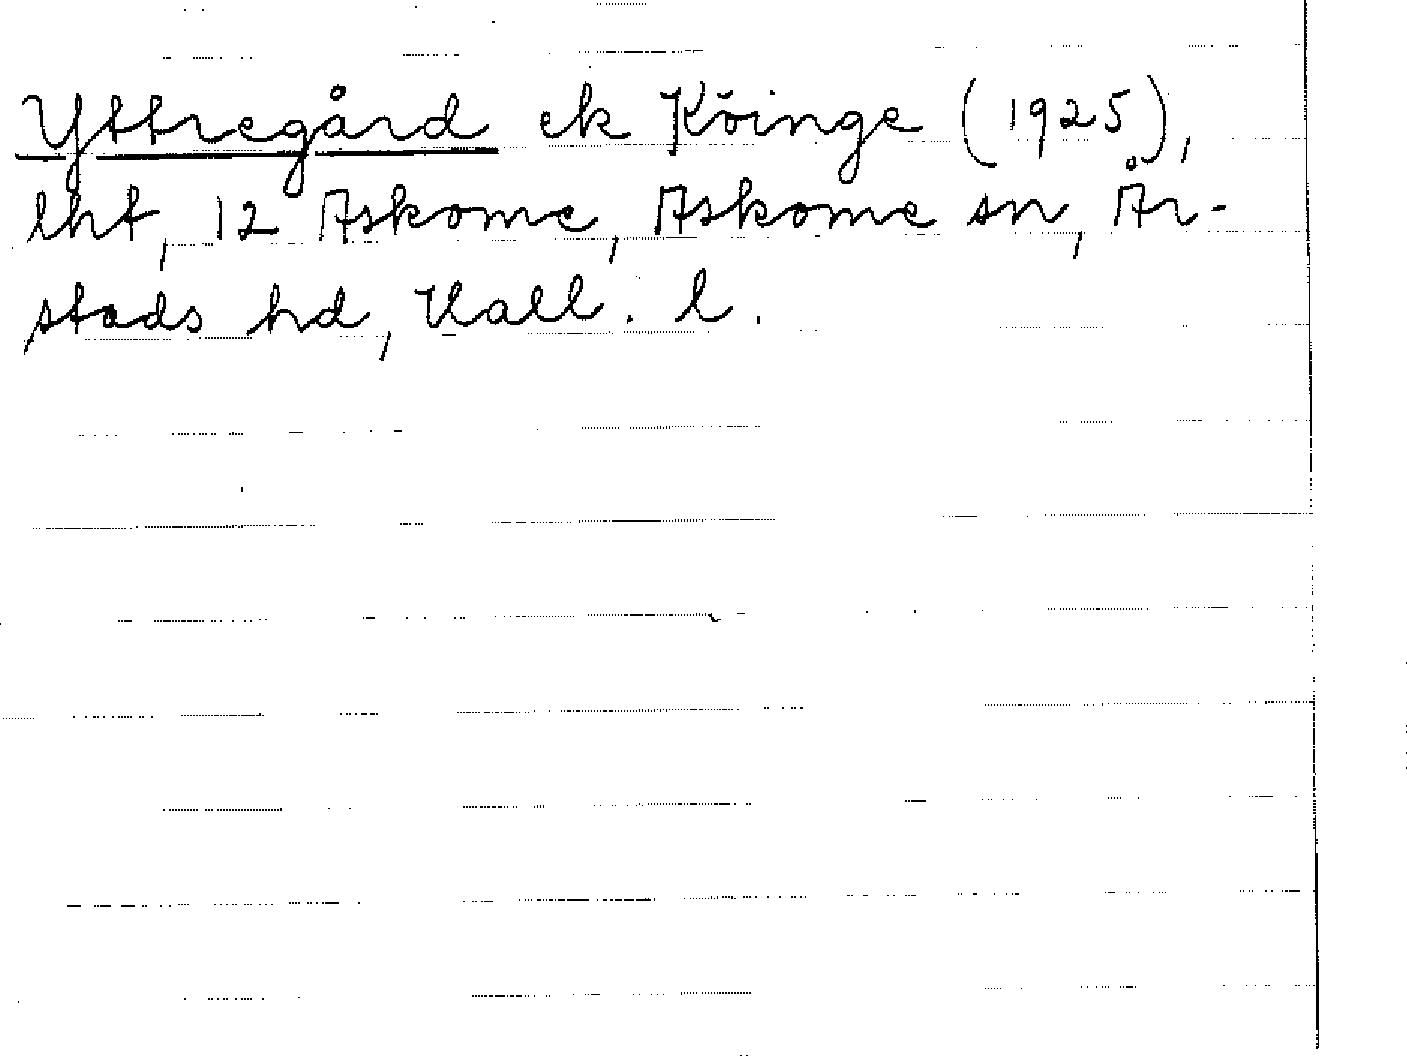 Yttregård ek Köinge (1925),
lht, 12 Askome, Askome sn, År-
stads hd, Hall. l.